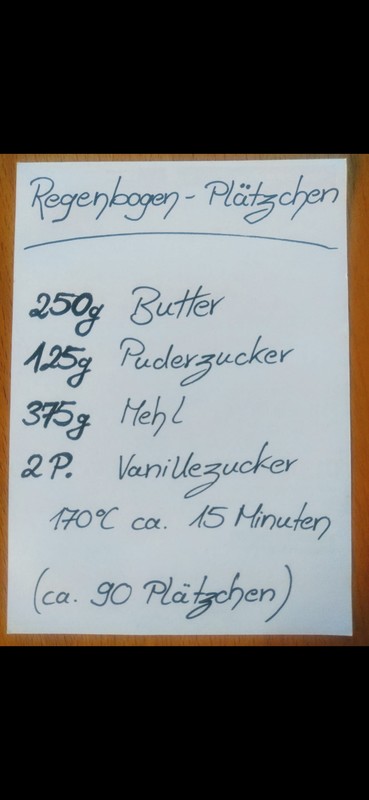 Regenbogen - Plätzchen
250g Butter
125g Puderzucker
375g Mehl
2 P. Vanillezucker
170°C ca. 15 Minuten
(ca. 90 Plätzchen)